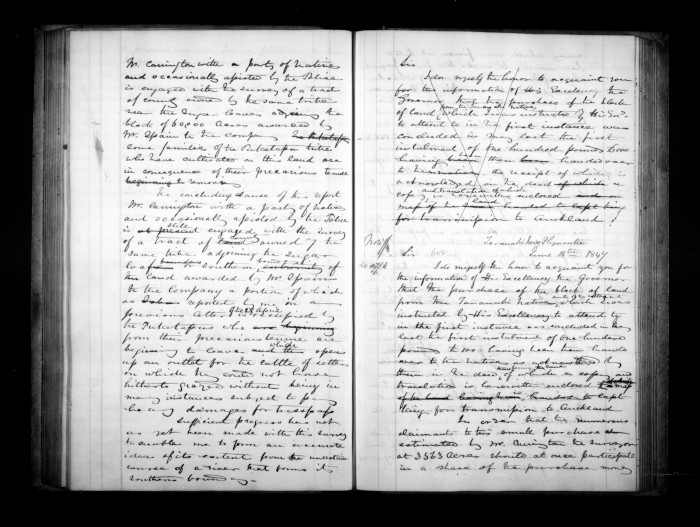 Mr. Carrington with a party of Natives
and occasionally assisted by the Police
is engaged with the survey of a tract
of country owned by the same tribe
near the Sugar Loaves adjoining the
block of 60,000 Acres awarded by
Mr. Spain to the Company
Some families of the Puketapu tribe
who have cultivated on this land are
in consequence of their precarious tenure
beginning to remove
The concluding clause of the report
Mr. Carrington with a party of Natives
and occasionally assisted by the Police
is at present engaged with the survey
of a tract of land owned by the
same tribe adjoining the Sugar
loaves to Southern of
the land awarded by Mr. Spain
to the Company a portion of which
as reported by me in a
previous letter is occupied by
the Puketapus who are beginning
from their precarious tenure are
beginning to leave and this opens
up an outlet for the cattle of settlers
on which they could not have
hitherto grazed without being in
many instances subject to pay
heavy damages for trespass
Sufficient progress has not
as yet been made with this survey
to enable me to form an accurate
idea of its extent from the uncertain
course of a river that forms its
southern boundary
Sir
I do myself the honor to acquaint you
for the information of His Excellency the
Governor that the purchase of the block
of land which I was instructed by His Exy.
to attend to in the first instance was
concluded in May last the first
instalment of one hundred pounds £100
having been then handed over
to the receipt of which
is acknowledged in the deed of which a
copy and translation is herewith enclosed
map of the land handed to Capt King
for transmission to Auckland
Taranaki New Plymouth
June 18th 1847
Sir
I do myself the honor to acquaint you for
the information of His Excellency the Governor
that the purchase of the block of land
from the Taranaki natives which I was
instructed by His Excellency to attend to
in the first instance was concluded in May
last the first instalment of one hundred
pounds £100 having been then handed
over to the Natives as acknowledged by
them in the deed of which a copy and
translation is herewith enclosed
of the land having been handed to Capt
King for transmission to Auckland
In order that the numerous
claimants to this small purchase
estimated by Mr. Carrington the Surveyor
at 3563 Acres should at once participate
in a share of the purchase money